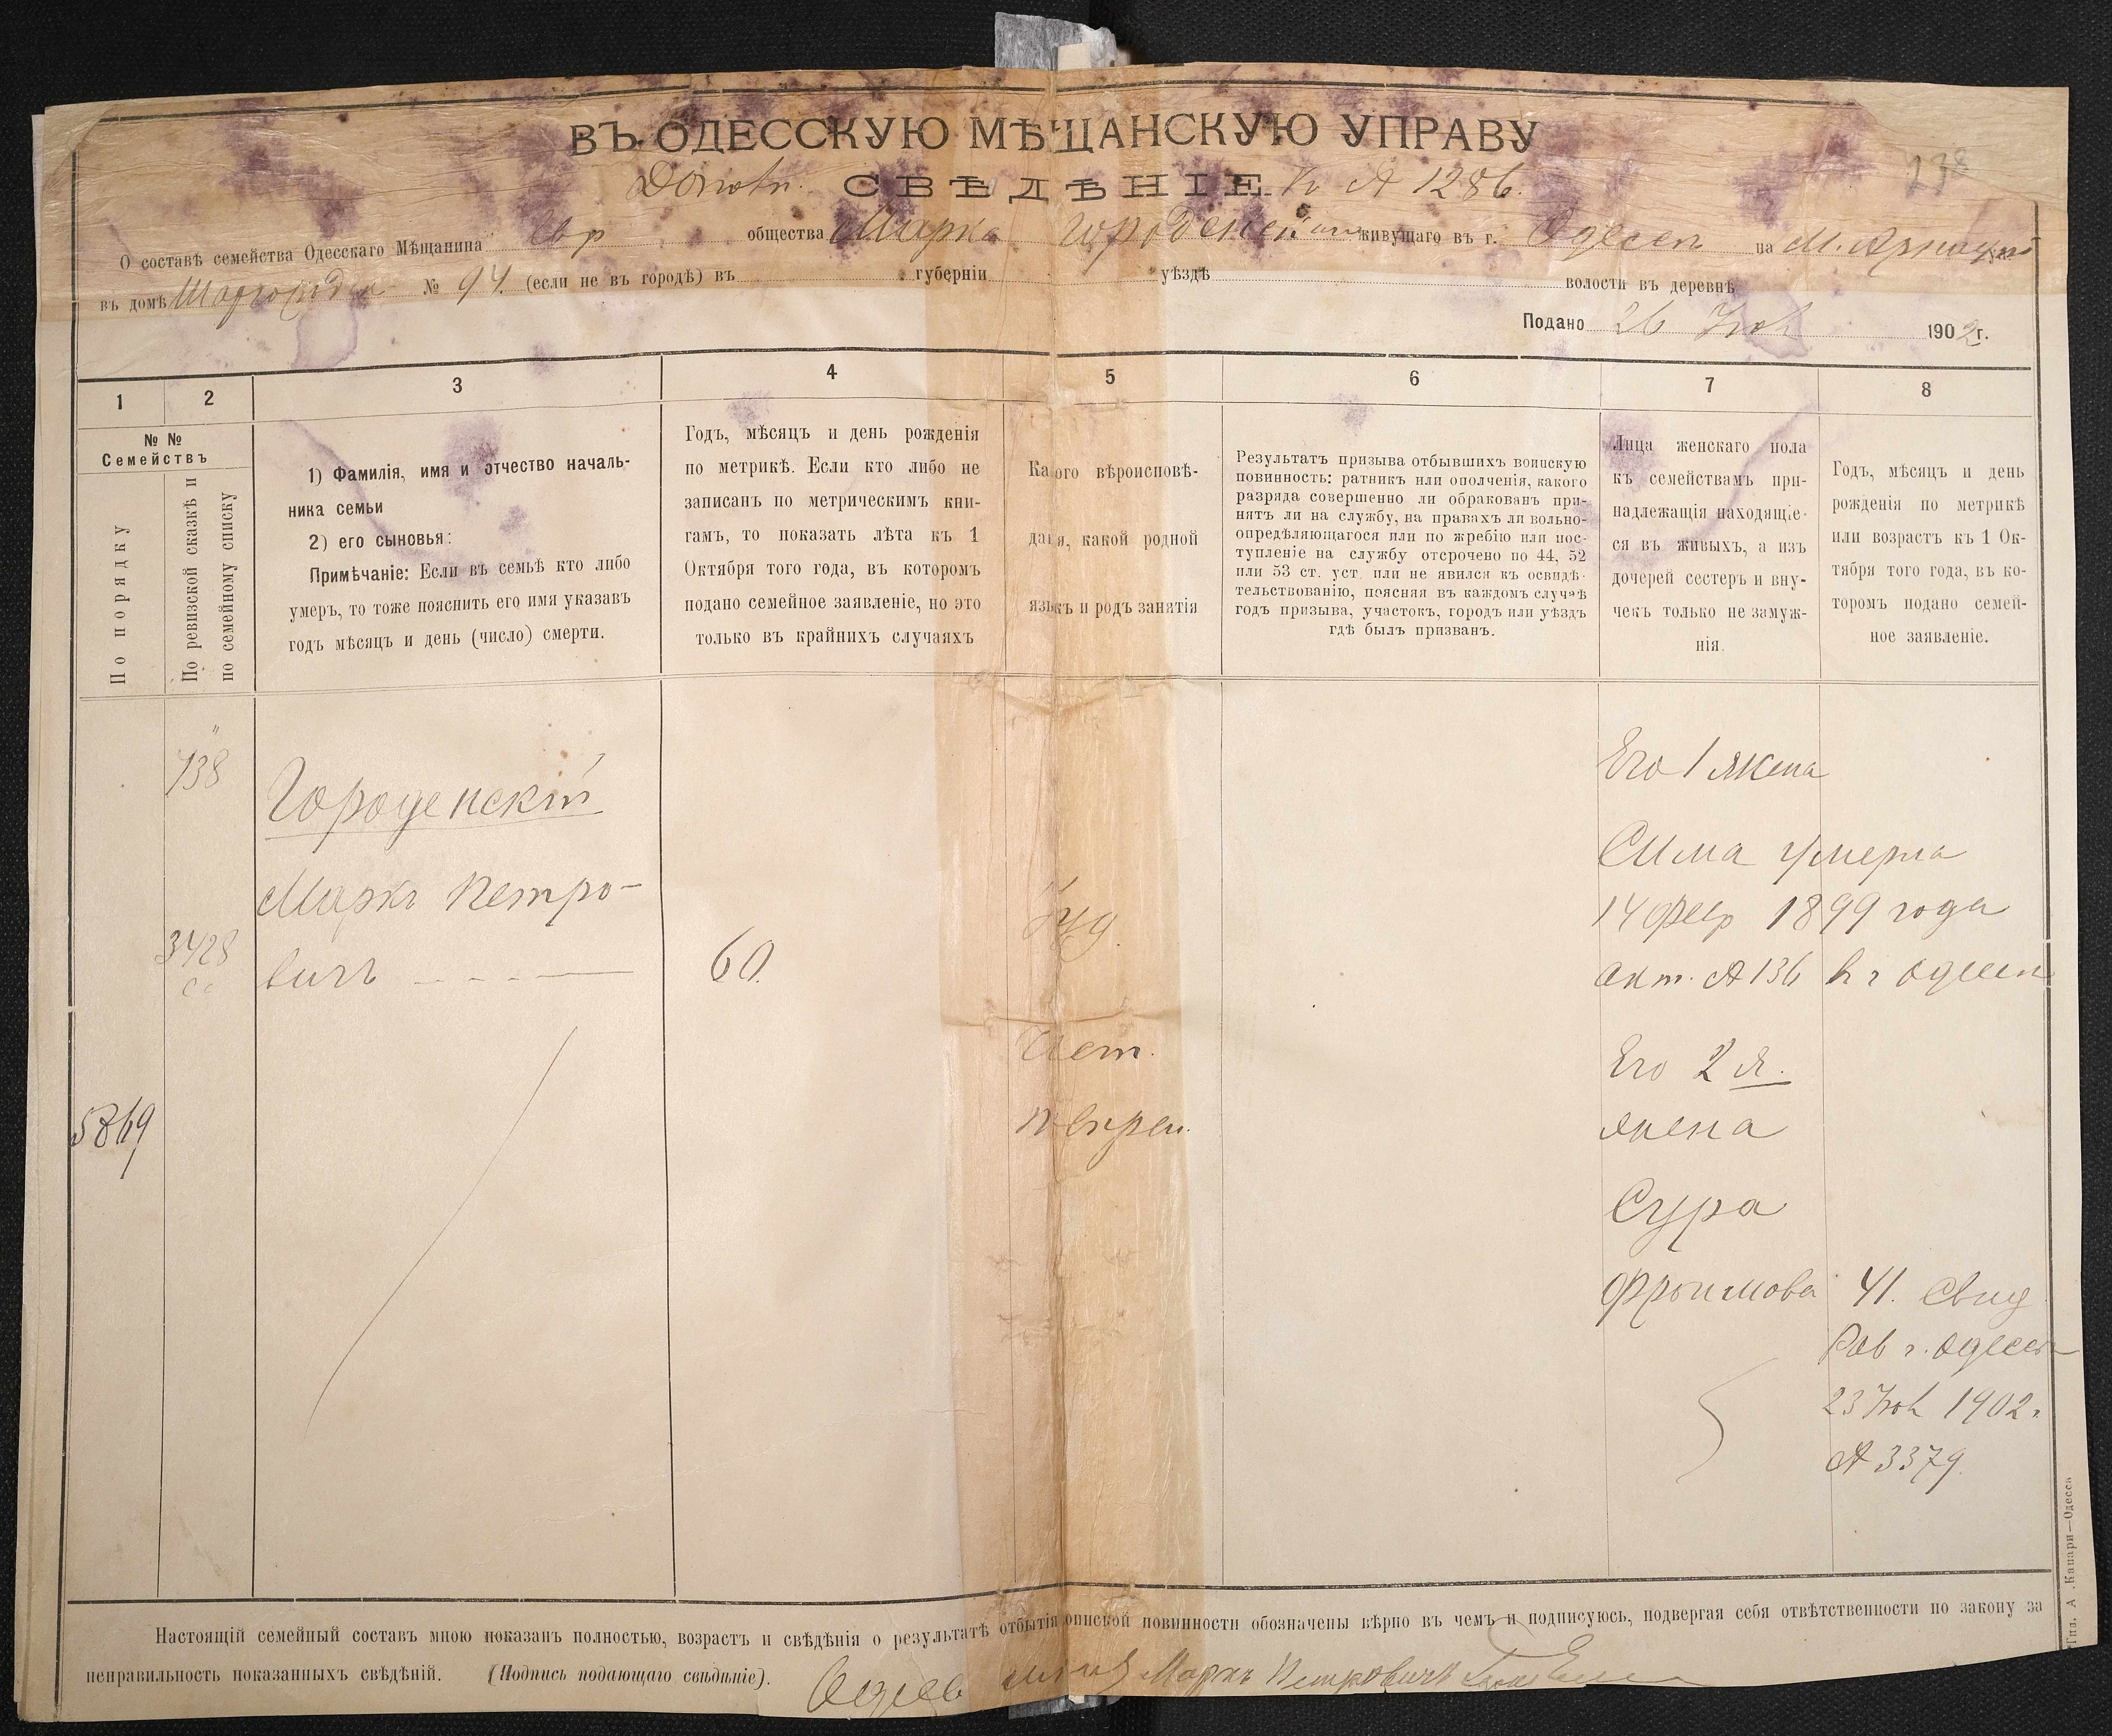 ВЪ ОДЕССКУЮ МѢЩАНСКУЮ УПРАВУ
СВѢДѢНІЕ к № 1286.
О составѣ семейства Одесскаго Мѣщанина Евр общества Марка живущаго въ г. Одессѣ на М. Арнаутс
въ домѣ № 94. (если не въ городѣ) въ губерніи уѣздѣ волости въ деревнѣ
Подано 26 Ноя 1902 г.
1 2 3 4 5 6 7 8
№ №
Семействъ
По порядку
По ревизской сказкѣ и
по семейному списку
1) Фамилія, имя и отчество началь-
ника семьи
2) его сыновья:
Примѣчаніе: Если въ семьѣ кто либо
умеръ, то тоже пояснить его имя указавъ
годъ мѣсяцъ и день (число) смерти.
Годъ, мѣсяцъ и день рожденія
по метрикѣ. Если кто либо не
записанъ по метрическимъ кни-
гамъ, то показать лѣта къ 1
Октября того года, въ которомъ
подано семейное заявленіе, но это
только въ крайнихъ случаяхъ
Какого вѣроисповѣ-
данія, какой родной
языкъ и родъ занятія
Результатъ призыва отбывшихъ воинскую
повинность: ратникъ или ополченія, какого
разряда совершенно ли обракованъ при-
нятъ ли на службу, на правахъ ли вольно-
опредѣляющагося или по жребію или пос-
тупленіе на службу отсрочено по 44, 52
или 53 ст. уст. или не явился къ освидѣ-
тельствованію, поясняя въ каждомъ случаѣ
годъ призыва, участокъ, городъ или уѣздъ
гдѣ былъ призванъ.
Лица женскаго пола
къ семействамъ при-
надлежащія находящіе-
ся въ живыхъ, а изъ
дочерей сестеръ и вну-
чекъ только не замуж-
нія.
Годъ, мѣсяцъ и день
рожденія по метрикѣ
или возрастъ къ 1 Ок-
тября того года, въ ко-
торомъ подано семей-
ное заявленіе.
738
Городенскій
Маркъ Петро-
3428
вичъ
60.
5869
Іуд.
Его 1 жена
Сима умерла
14 февр 1899 года
акт. № 136 в г Одессѣ
Его 2 я.
жена
Сура
Фроимова 41. Свид
Рав г. Одессы
23 Ноя 1902 г
№ 3379.
Настоящій семейный составъ мною показанъ полностью, возрастъ и свѣдѣнія о результатѣ отбытія воинской повинности обозначены вѣрно въ чемъ и подписуюсь, подвергая себя отвѣтственности по закону за
неправильность показанныхъ свѣдѣній. (Подпись подающаго свѣдѣніе). Маркъ Петровичъ
Тип. А. Капари—Одесса